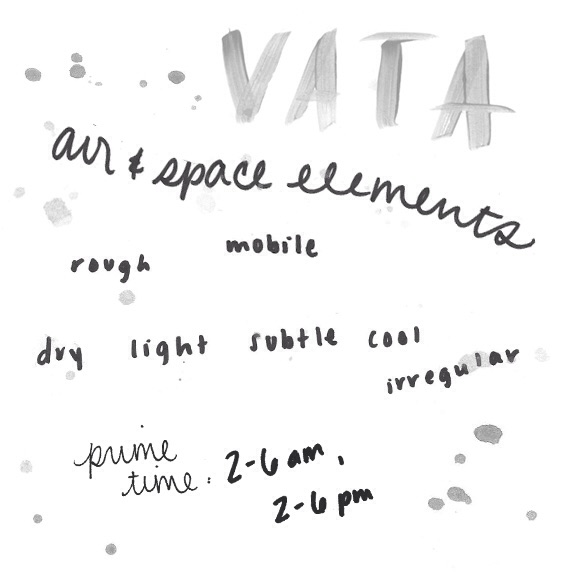 VATA
air & space elements
mobile
rough
dry light subtle cool
irregular
prime
time: 2-6 am,
2-6 pm